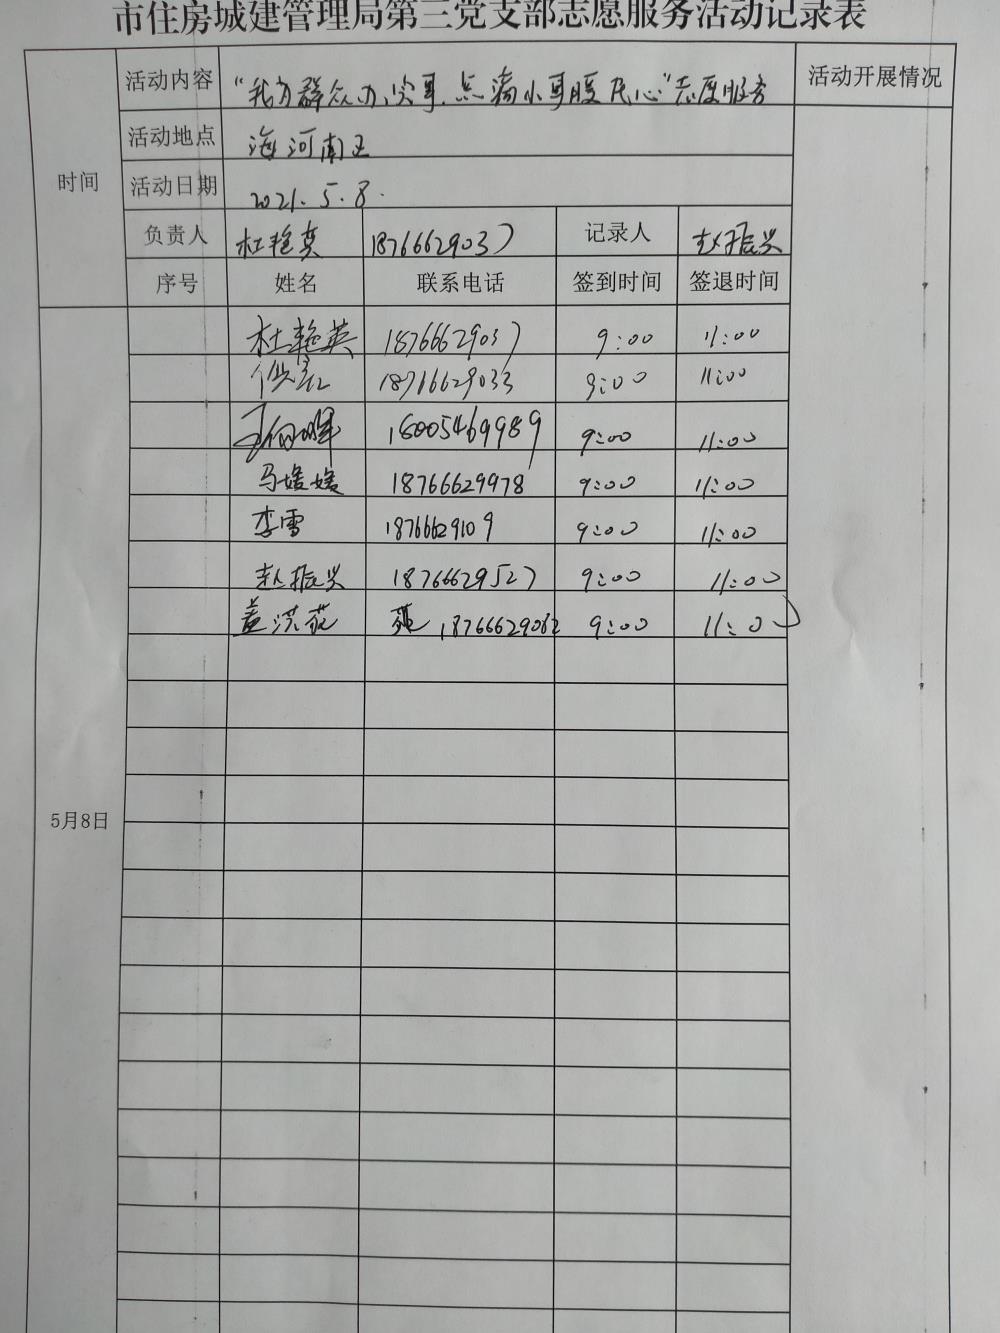 市住房城建管理局第三党支部志愿服务活动记录表
时间 活动内容 "我为群众办实事,点滴小事暖民心"志愿服务 活动开展情况
活动地点 海河南区
活动日期 2021.5.8.
负责人 杜艳英 18766629037 记录人 赵振兴
序号 姓名 联系电话 签到时间 签退时间
5月8日
杜艳英 18766629037 9:00 11:00
18766629033 9:00 11:00
18005469989 9:00 11:00
马媛媛 18766629978 9:00 11:00
李雪 18766629109 9:00 11:00
赵振兴 18766629527 9:00 11:00
盖洪苑 苑 18766629062 9:00 11:00